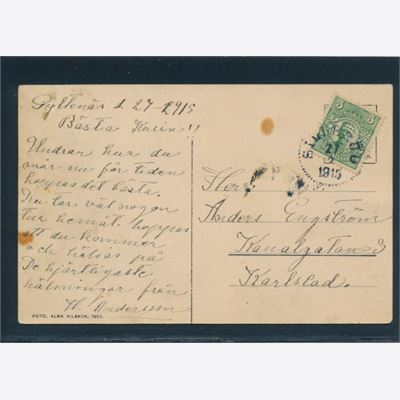 Gyttenäs d. 27-1915
Bästa Kusin!!
Undrar hur du
mår nu för tiden
hoppas det bästa.
Du tar väl någon
tur hemåt. hoppas
att du kommer
och hälsar på
De hjärtligaste
hälsningar från
H. Andersson
FOTO. ALMA NILSSON, 1910.
5
27
5
1915
Herr
Anders Engström
Kanalgatan 3
Karlstad.